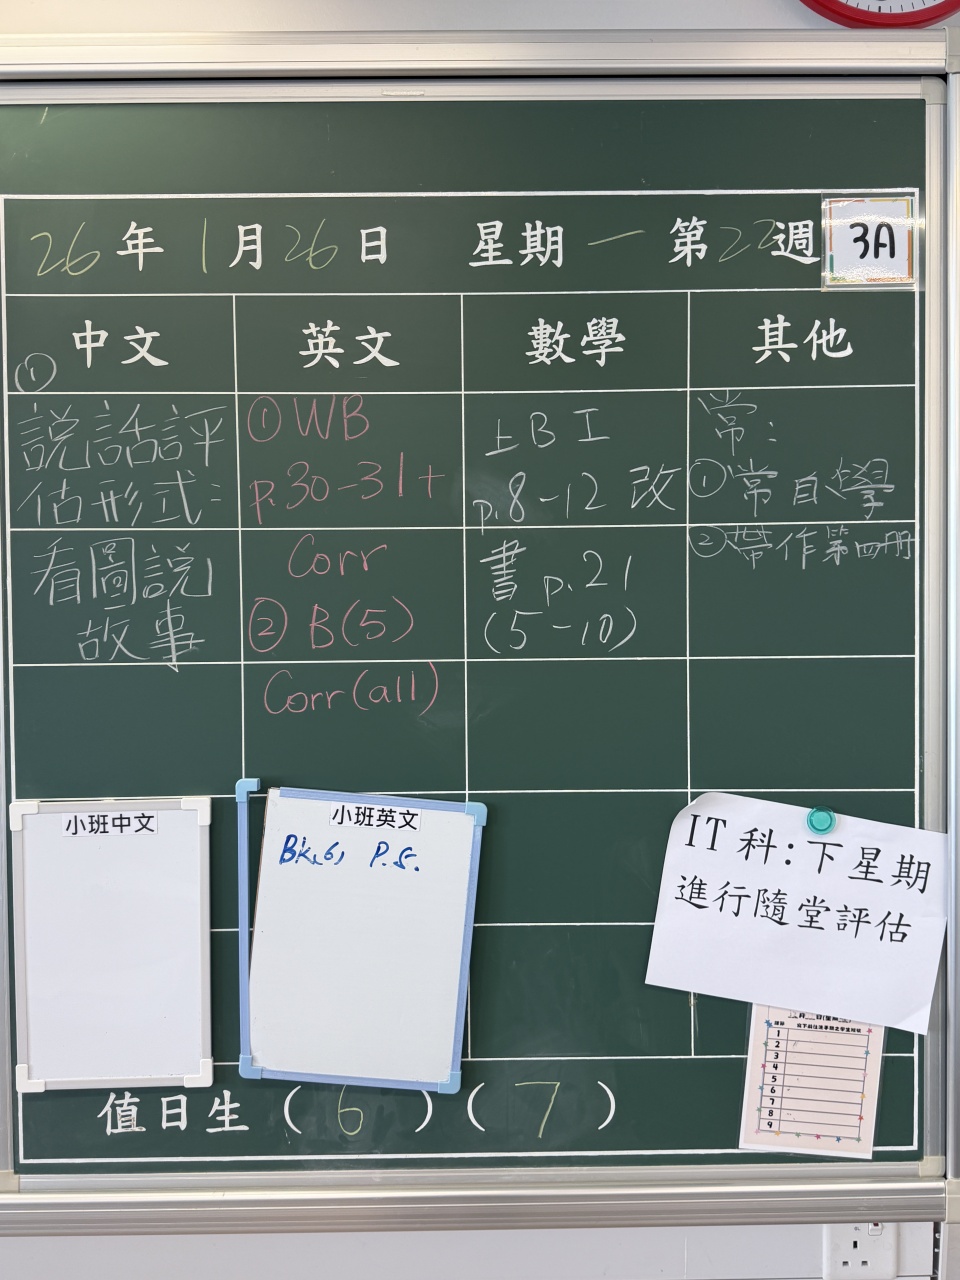 26年1月26日 星期一 第22週 3A
中文 英文 數學 其他
①
說話評
估形式：
看圖說
故事
① WB
p.30-31+
Corr
② B(5)
Corr(all)
上B工
p.8-12 改
書 p.21
(5-10)
常：
①常自學
②帶作第四冊
小班中文
小班英文
BK6, P.5.
IT科：下星期
進行隨堂評估
1
2
3
4
5
6
7
8
9
值日生（6）（7）